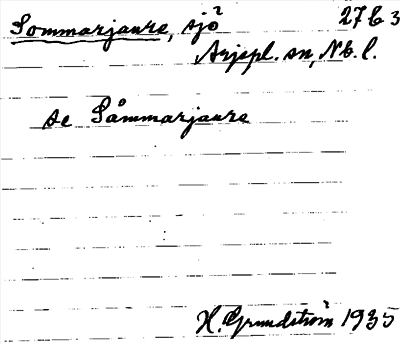 Sommarjaure, sjö 27 C 3
Arjepl. sn, Nb. l.
se Såmmarjaure
H. Grundström 1935